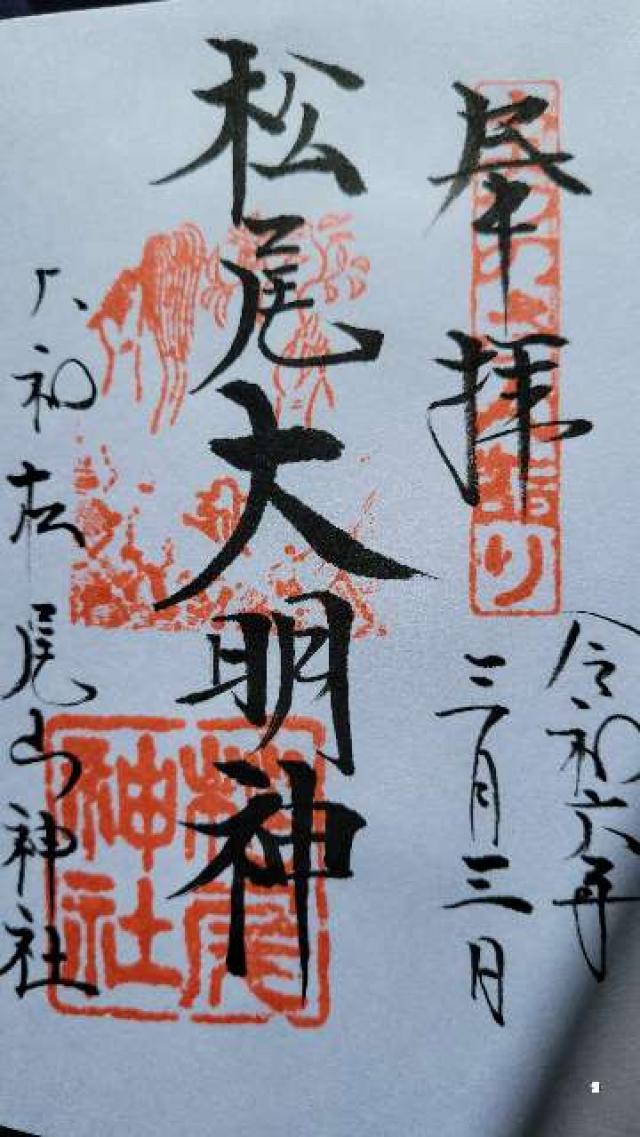 奉拝
令和六年
三月三日
松尾大明神
松尾
神社
和松尾山神社